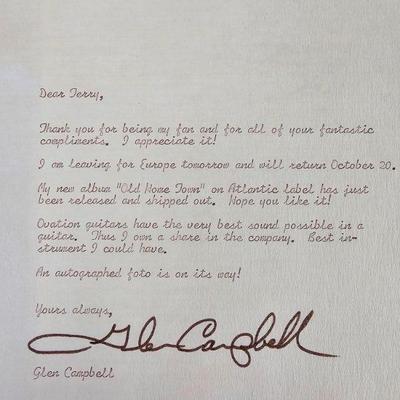 Dear Terry,
Thank you for being my fan and for all of your fantastic
compliments. I appreciate it!
I am leaving for Europe tomorrow and will return October 20.
My new album "Old Home Town" on Atlantic label has just
been released and shipped out. Hope you like it!
Ovation guitars have the very best sound possible in a
guitar. Thus I own a share in the company. Best in-
strument I could have.
An autographed foto is on its way!
Yours always,
Glen Campbell
Glen Campbell